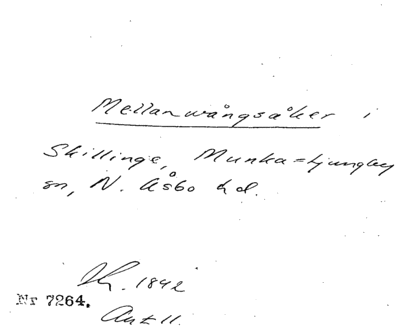 Mellanwångsåker i
Skillinge, Munka=Ljungby
sn, N. Åsbo hd.
1842
Nr 7264.
Ant 11.